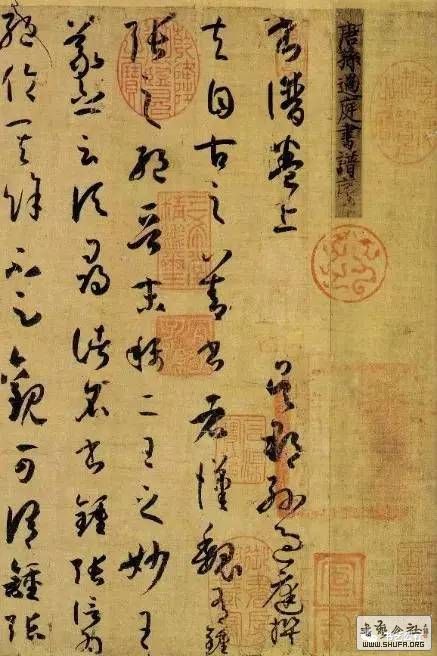 唐孫過庭書譜序
書譜卷上 吳郡孫過庭撰
夫自古之善書者漢魏有鍾
張之絕晉末稱二王之妙王
羲之云頃尋諸名書鍾張信為
絕倫其餘不足觀可謂鍾張
WWW.SHUFA.ORG